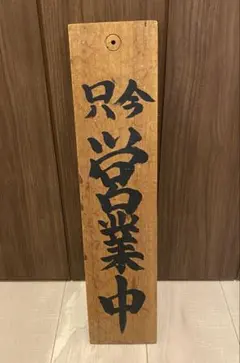 只今
営業中